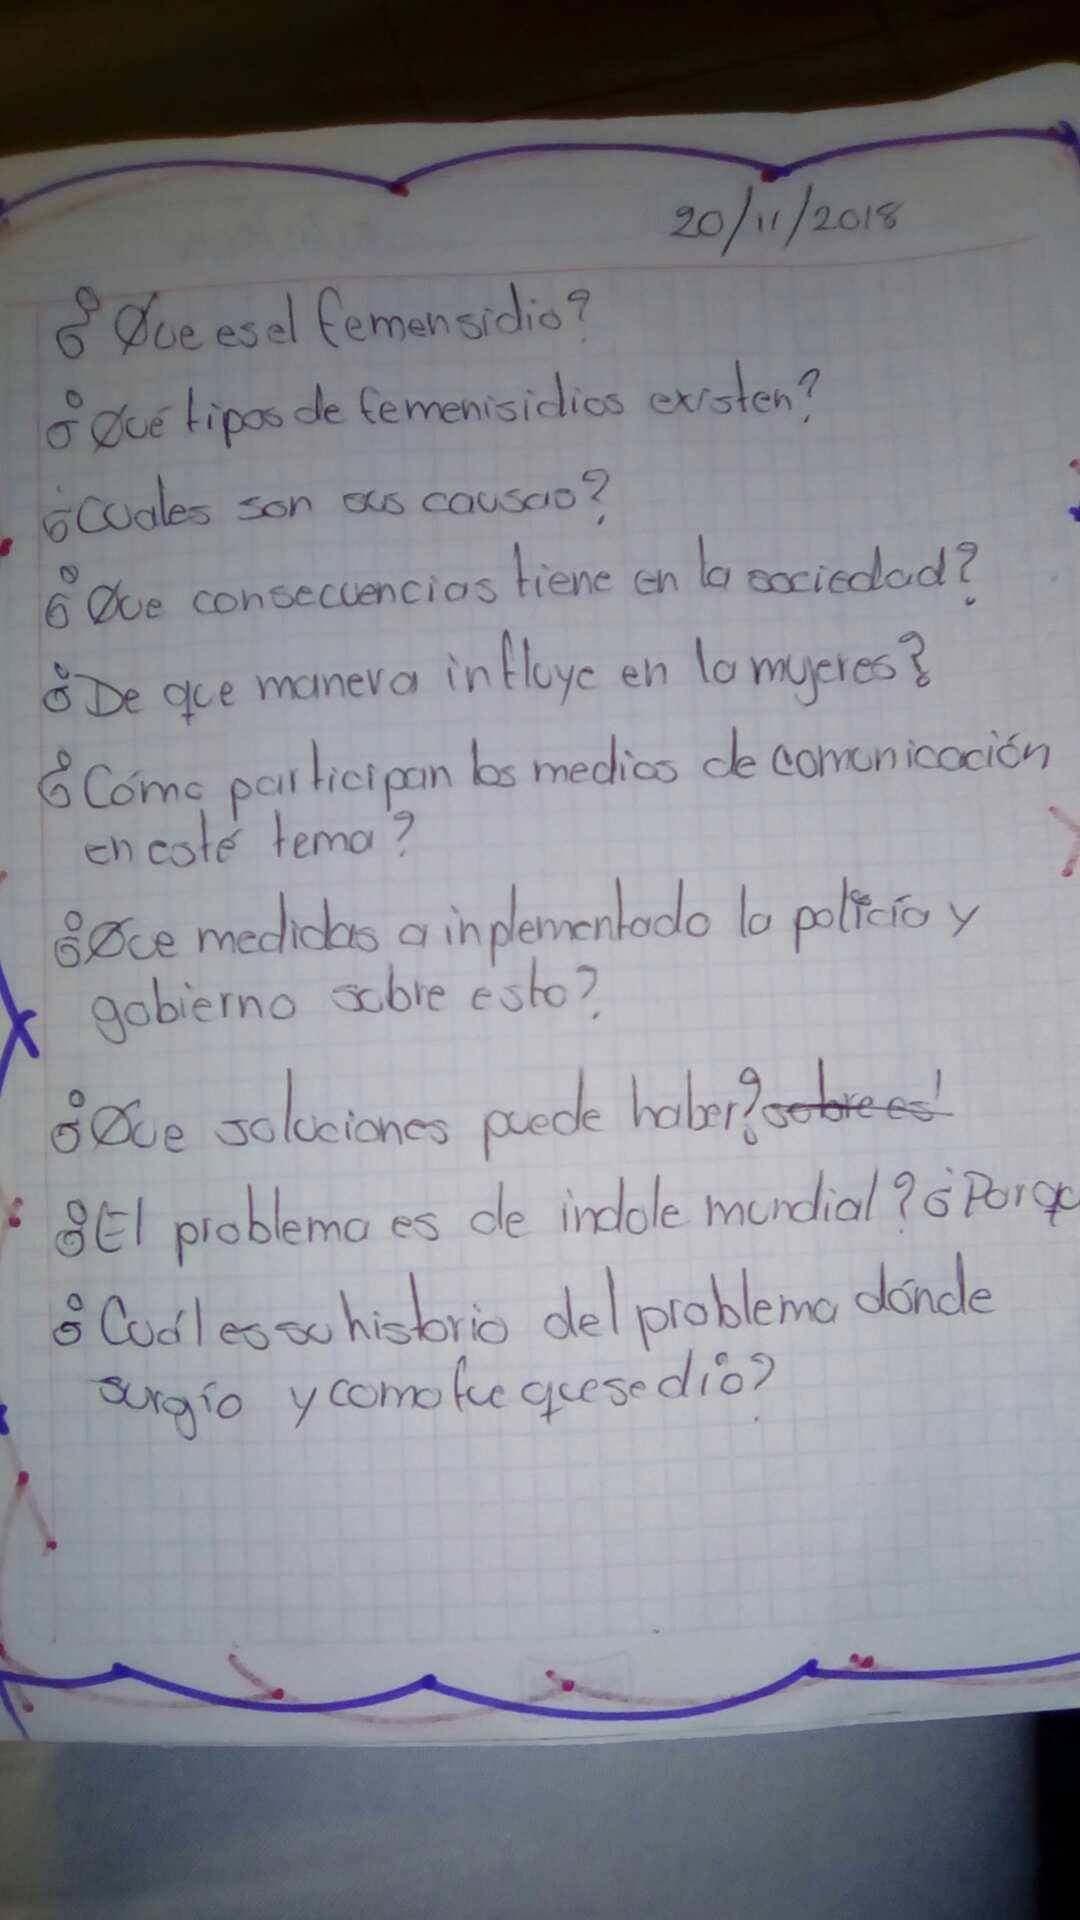 20/11/2018
¿Que es el femensidio?
¿Qué tipos de femenisidios existen?
¿Cuales son sus causas?
¿Que consecuencias tiene en la sociedad?
¿De que manera influye en la mujeres?
¿Cómo participan los medios de comunicación
en esté tema?
¿Que medidas a inplementado la policía y
gobierno sobre esto?
¿Que soluciones puede haber? sobre es
¿El problema es de indole mundial? ¿Porqu
¿Cuál es su historia del problema dónde
surgío y como fue que se dió?